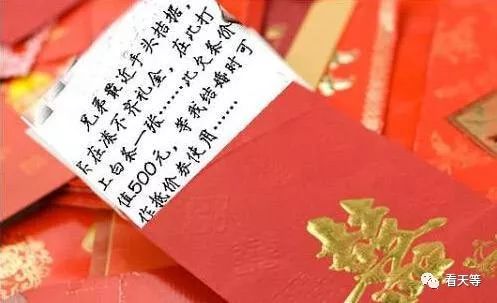 兄弟最近手头拮据,
实在凑不齐礼金,在此打
上白条一张……此欠条价
值500元,等我结婚时可
作抵价券使用……
看天等